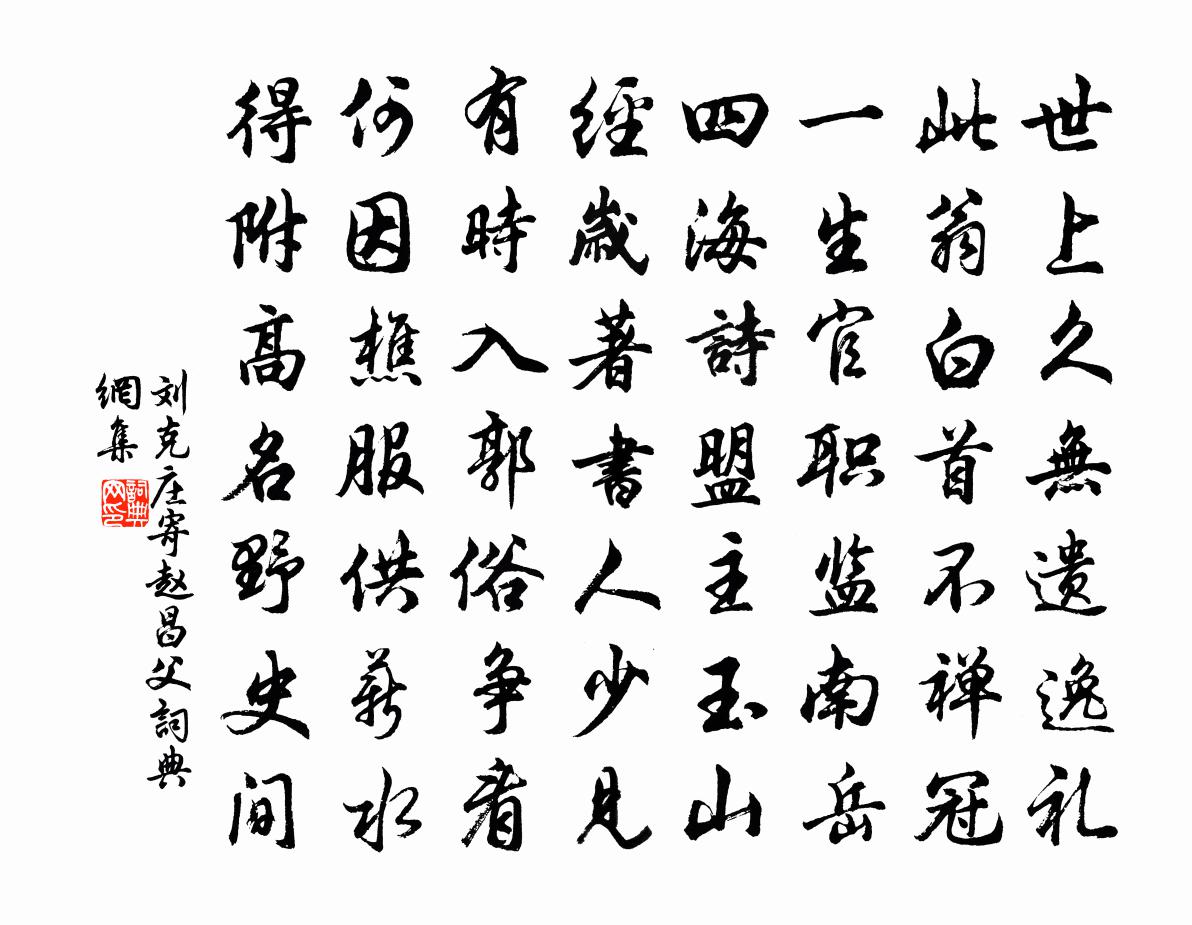 世上久無遗逸礼
此翁白首不禅冠
一生官职监南岳
四海詩盟主玉山
經歲著書人少見
有時入郭俗争看
何因樵服供薪水
得附高名野史间
刘克庄寄赵昌父詞典
網集
詞典
网印